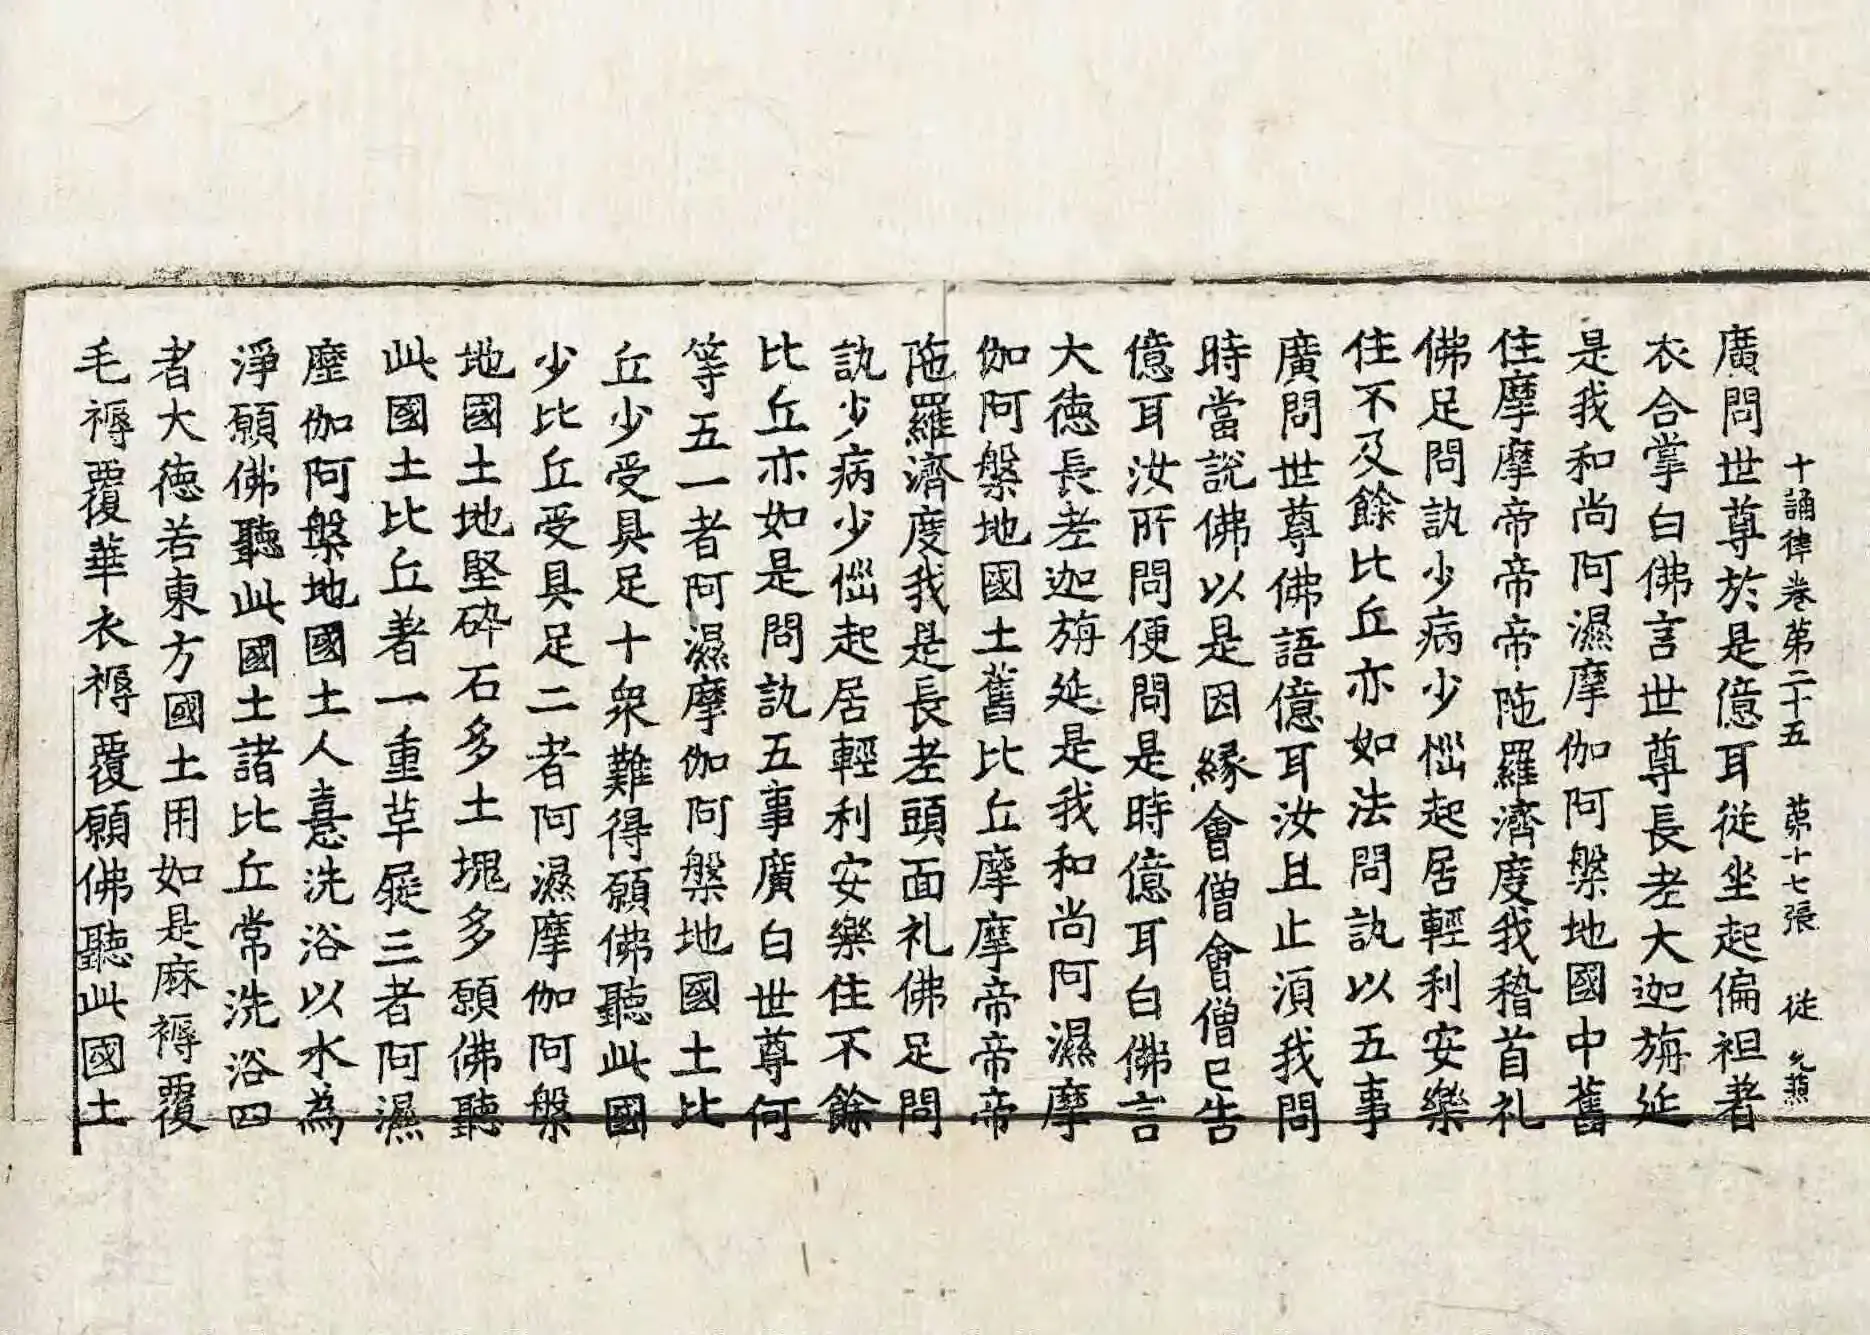 十誦律卷苐二十五　苐十七張　従
廣問世尊於是億耳従坐起偏袒著
衣合掌白佛言世尊長老大迦旃延
是我和尚阿濕摩伽阿槃地國中舊
住摩摩帝帝帝陁羅濟度我稽首礼
佛足問訊少病少惱起居輕利安樂
住不及餘比丘亦如法問訊以五事
廣問世尊佛語億耳汝且止湏我問
時當説佛以是因緣會僧會僧已告
億耳汝所問便問是時億耳白佛言
大徳長老迦旃延是我和尚阿濕摩
伽阿槃地國土舊比丘摩摩帝帝帝
陁羅濟度我是長老頭面礼佛足問
訊少病少惱起居輕利安樂住不餘
比丘亦如是問訊五事廣白世尊何
等五一者阿濕摩伽阿槃地國土比
丘少受具足十衆難得願佛聽此國
少比丘受具足二者阿濕摩伽阿槃
地國土地堅碎石多土塊多願佛聽
此國土比丘著一重草屣三者阿濕
塵伽阿槃地國土人憙洗浴以水為
淨願佛聽此國土諸比丘常洗浴四
者大徳若東方國土用如是麻褥覆
毛褥覆華衣褥覆願佛聽此國土